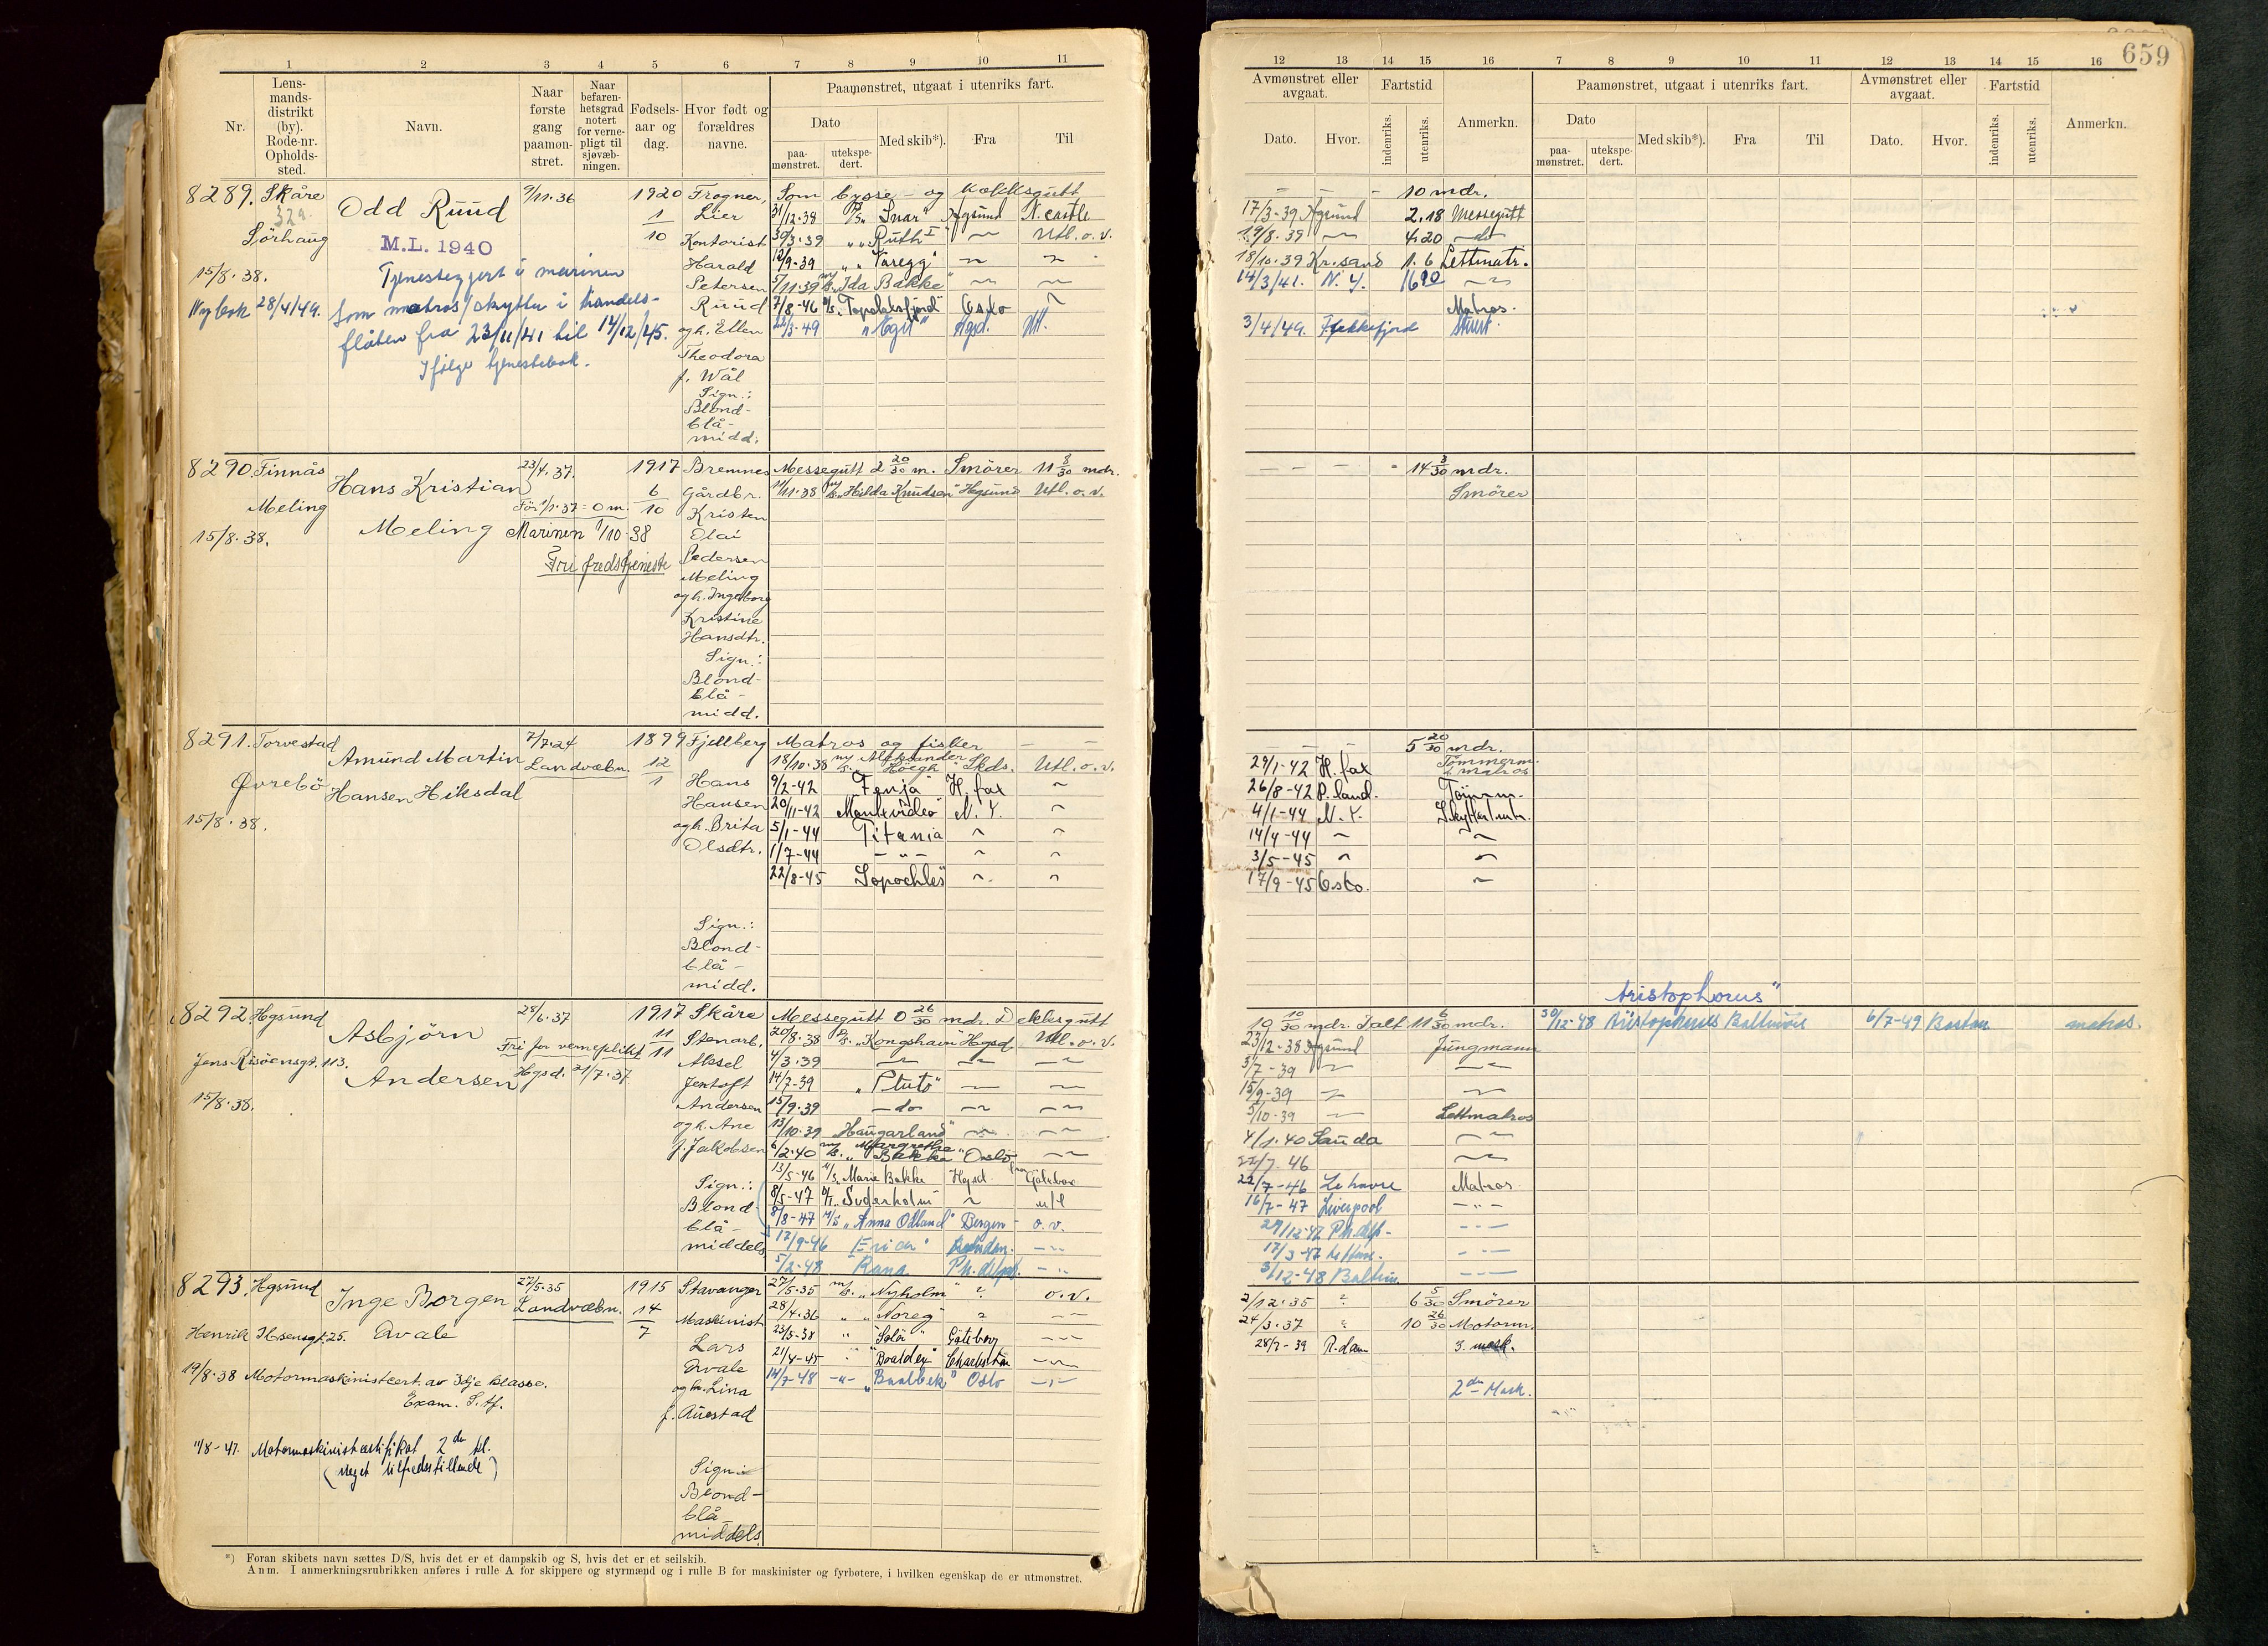 659
1 2 3 4 5 6 7 8 9 10 11
Nr.
Lensmandsdistrikt (by). Rode-nr. Opholdssted.
Navn.
Naar første gang paamønstret.
Naar befarenhetsgrad notert for vernepligt til sjøvæbningen.
Fødselsaar og dag.
Hvor født og forældres navne.
Paamønstret, utgaat i utenriks fart.
Dato
paamønstret.
utekspedert.
Med skib*).
Fra
Til
8289. Skåre
Odd Ruud
9/11.36
1920 Frogner,
Som bysse- og kokksgutt
1/10
Lier
31/12.38 D/S „Snar" Hgsund N. castle
Sörhaug
M.L. 1940
Kontorist
30/3.39 „ „Ruth I" Utl. o. v.
15/8.38.
Tjenestegjort i marinen
Harald
12/9.39 „ „Varegg"
Petersen
5/11.39 m/s. „Ida Bakke"
Ny bok 28/4/49.
som matros/skytter i handels-
Ruud
7/8-46 M/S. „Topdalsfjord" Oslo
flåten fra 23/11/41 til 14/12/45.
og h. Ellen
22/3-49 „Egil" Hgsd. Utl.
Ifölge tjenestebok.
Theodora
f. Wål
Sign.:
Blond-
blå-
midd.
8290. Finnås
Hans Kristian
23/4.37.
1917 Bremnes
Messegutt 2 20/30 m. Smörer 11 8/30 mdr.
Meling
För 1/1.37 = 0 m.
6/10
Gårdbr.
11/11.38 m/s. „Hilda Knudsen" Hgsund Utl. o. v.
15/8.38.
Meling
Marinen 1/10-38
Kristen
Fri fredstjeneste
Olai
Pedersen
Meling
og h. Ingeborg
Kristine
Hansdtr.
Sign.:
Blond-
blå-
midd.
8291. Torvestad
Amund Martin
7/7.24
1899 Fjellberg
Matros og fisker
Øvrebö
Hansen Hiksdal
Landvæbn.
12/1
Hans
18/10.38 m/s. „Aleksander Höegh" Skds. Utl. o. v.
15/8.38.
Hansen
9/2-42 „Fenja" H. fax
og h. Brita
20/11-42 „Montevideo" N. Y.
Olsdtr.
5/1-44 Titania
1/7-44 - „ -
22/8-45 Sopochles
Sign.:
Blond-
blå-
midd.
8292. Hgsund
Asbjörn
28/6.37
1917 Skåre
Messegutt 0 26/30 mdr. Dekksgutt
Jens Risöensgt. 113.
Andersen
Fri for verneplikt
Hgsd. 21/7.37
11/11
Stenarb.
20/8.38 D/S. „Kongshavn" Hgsd Utl. o. v.
15/8.38.
Aksel
4/3.39
Jentoft
14/7-39 „Pluto"
Andersen
15/9.39 - do
og h. Ane
13/10.39 „Haugarland"
f. Jakobsen
6/2.40 m/s. „Margrethe Bakke" Oslo
13/5-46 M/S „Marie Bakke Hgsd. Göteborg
Sign.:
8/5-47 D/T. Suderholm u/l
Blond-
8/8-47 M/S „Anna Odland" Bergen - o. v.
blå-
17/9-46
middels
5/2-48 Rana Ph. delph.
8293. Hgsund
Inge Borgen
27/5.35
1915 Stavanger
27/5.35 m/s. „Nyholm" ? o. v.
Henrik Ibsensgt. 25.
Avale
Landvæbn.
14/7
Maskinist
28/4.36 „ „Noreg" ?
Lars
23/5-38 „ „Sola" Göteborg
19/8.38 Motormaskinistcert. av 3dje klasse.
Avale
21/4-45 Charleston
Exam. S. tf.
og h. Lina
14/7-48 - „ - „Baalbek" Oslo
f. Auestad
11/8-47. Motormaskinistcertifikat 2den kl.
(Meget tilfredsstillende)
Sign:
Blond-
blå-
middels.
*) Foran skibets navn sættes D/S, hvis det er et dampskib og S, hvis det er et seilskib.
Anm. I anmerkningsrubrikken anføres i rulle A for skippere og styrmænd og i rulle B for maskinister og fyrbøtere, i hvilken egenskap de er utmønstret.
12 13 14 15 16 7 8 9 10 11 12 13 14 15 16
Avmønstret eller avgaat.
Fartstid
Paamønstret, utgaat i utenriks fart.
Avmønstret eller avgaat.
Fartstid
Dato. Hvor. indenriks. utenriks. Anmerkn.
Dato paamønstret. utekspedert. Med skib*). Fra Til
Dato. Hvor. indenriks. utenriks. Anmerkn.
10 mdr.
17/3-39 Hgsund 2.18 Messegutt
19/8.39 4.20 - do -
18/10.39 Kr.sand 1.6 Lettmatr.
14/3/41. N. Y.
Matros.
3/4/49. Flekkefjord
14 3/30 mdr.
Smörer
5 20/30 mdr.
29/1-42 H. fax Tömmerm. & matros
26/8-42 P. land. Tömm.
4/1-44 N. Y.
14/4-44
3/5-45
17/9-45 Oslo.
Aristophorus"
19 10/30 mdr. Ialt 11 6/30 mdr.
30/12-48 Baltimore 6/7-49 Boston matros.
23/12-38 Hgsund Jungmann
3/7-39
15/9-39
5/10-39 Lettmatros
4/1.40 Sauda
22/7.46
22/7-46 Le havre Matros
16/7-47 Liverpool - „ -
29/12-47 Ph. delf -
17/3-47 Le Havre.
3/12-48 Baltim.
2/12.35 ? 6 5/30 Smörer
24/3.37 10 26/30 Motorm.
28/7-39 R.dam 3. mask.
2den Mask.